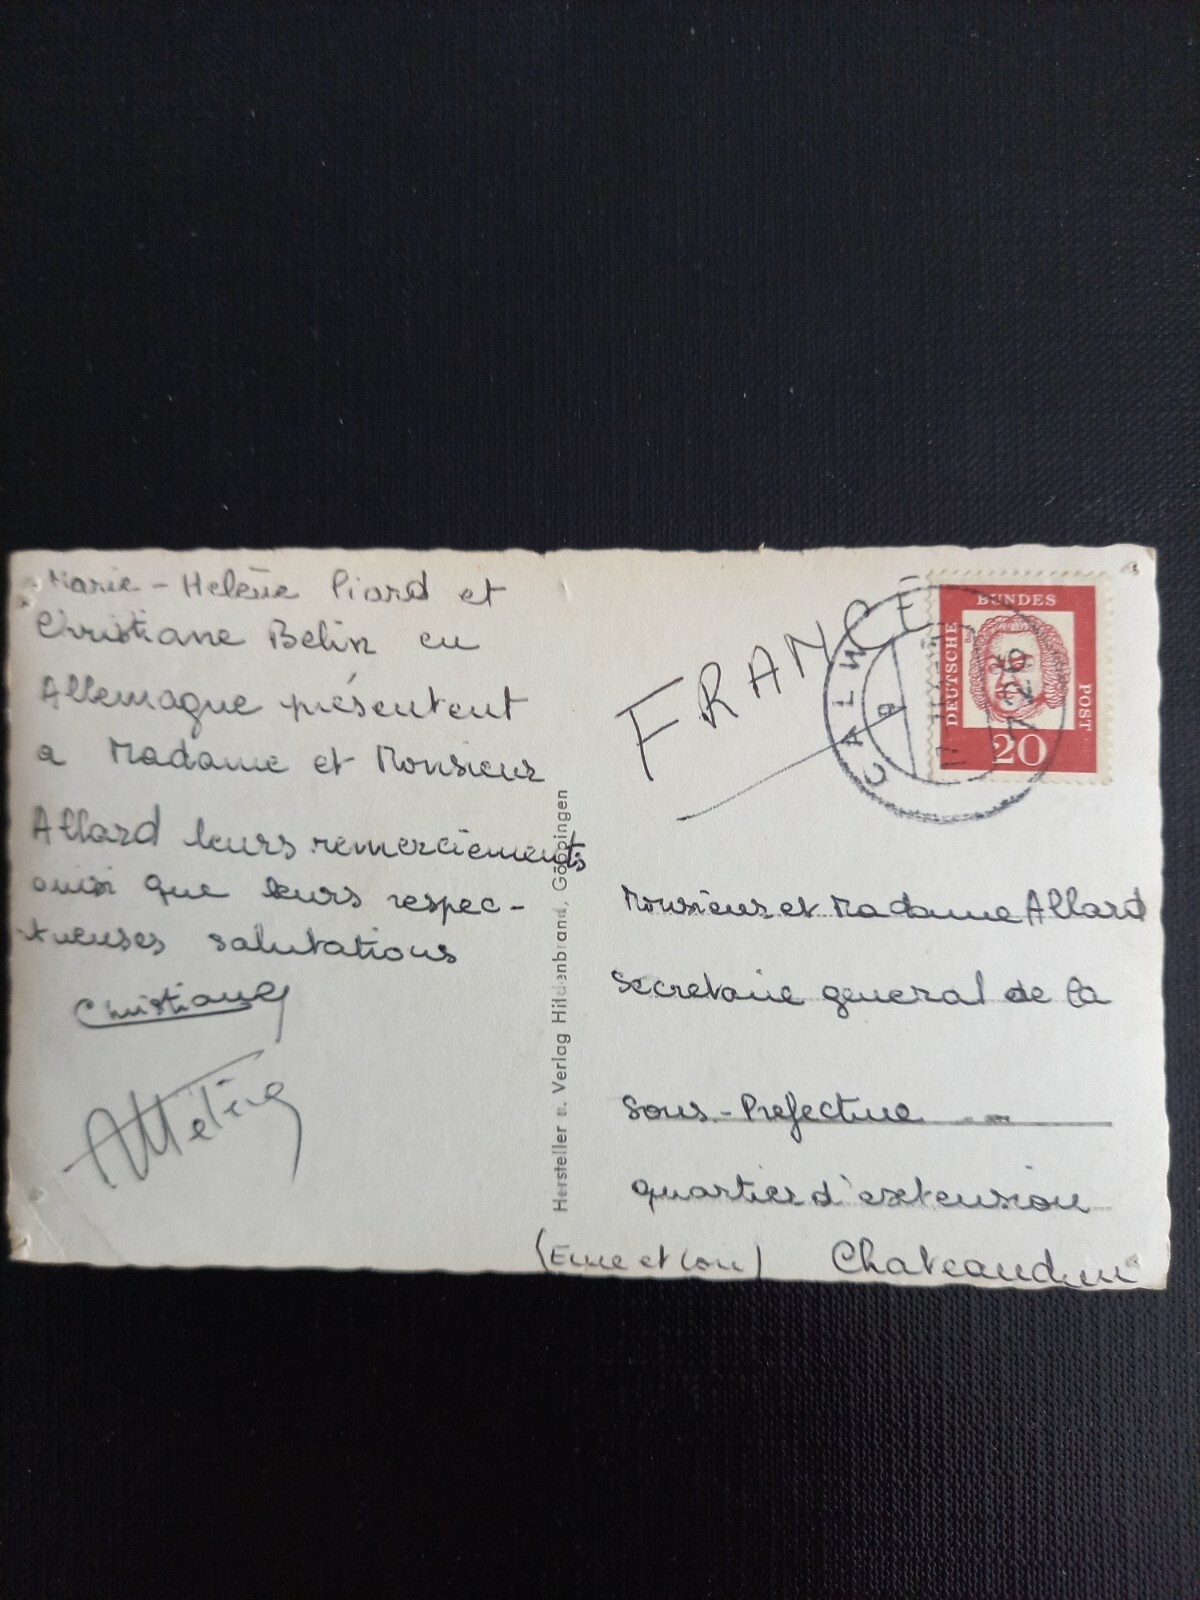 Marie - Helène Piard et
Christiane Belin en
Allemagne présentent
a Madame et Monsieur
Allard leurs remerciements
ainsi que leurs respec-
tueuses salutations
Christiane
Hersteller u. Verlag Hildenbrand, Göppingen
FRANCE
CALW
a
726
DEUTSCHE
BUNDES
POST
20
Monsieur et Madame Allard
Secretaire general de la
Sous - Prefecture
quartier d'extension
(Eure et Loir) Chateaudun